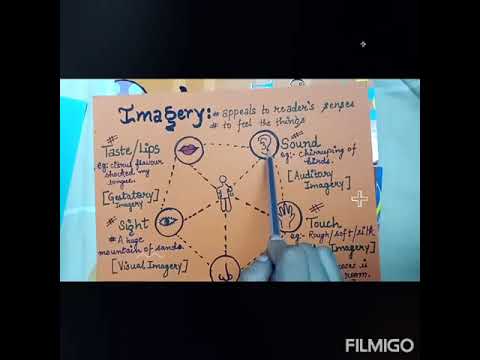 Imagery: # appeals to reader's senses
# to feel the things
#
Taste/Lips
eg: citrus flavour
shocked my
tongue.
[Gestatory
Imagery]
#
Sound
eg:- chirruping of
birds.
[Auditory
Imagery]
#
Sight
# A huge
mountain of sands.
[Visual Imagery]
#
Touch
eg:- Rough/soft/silk
Imagery]
is
FILMIGO